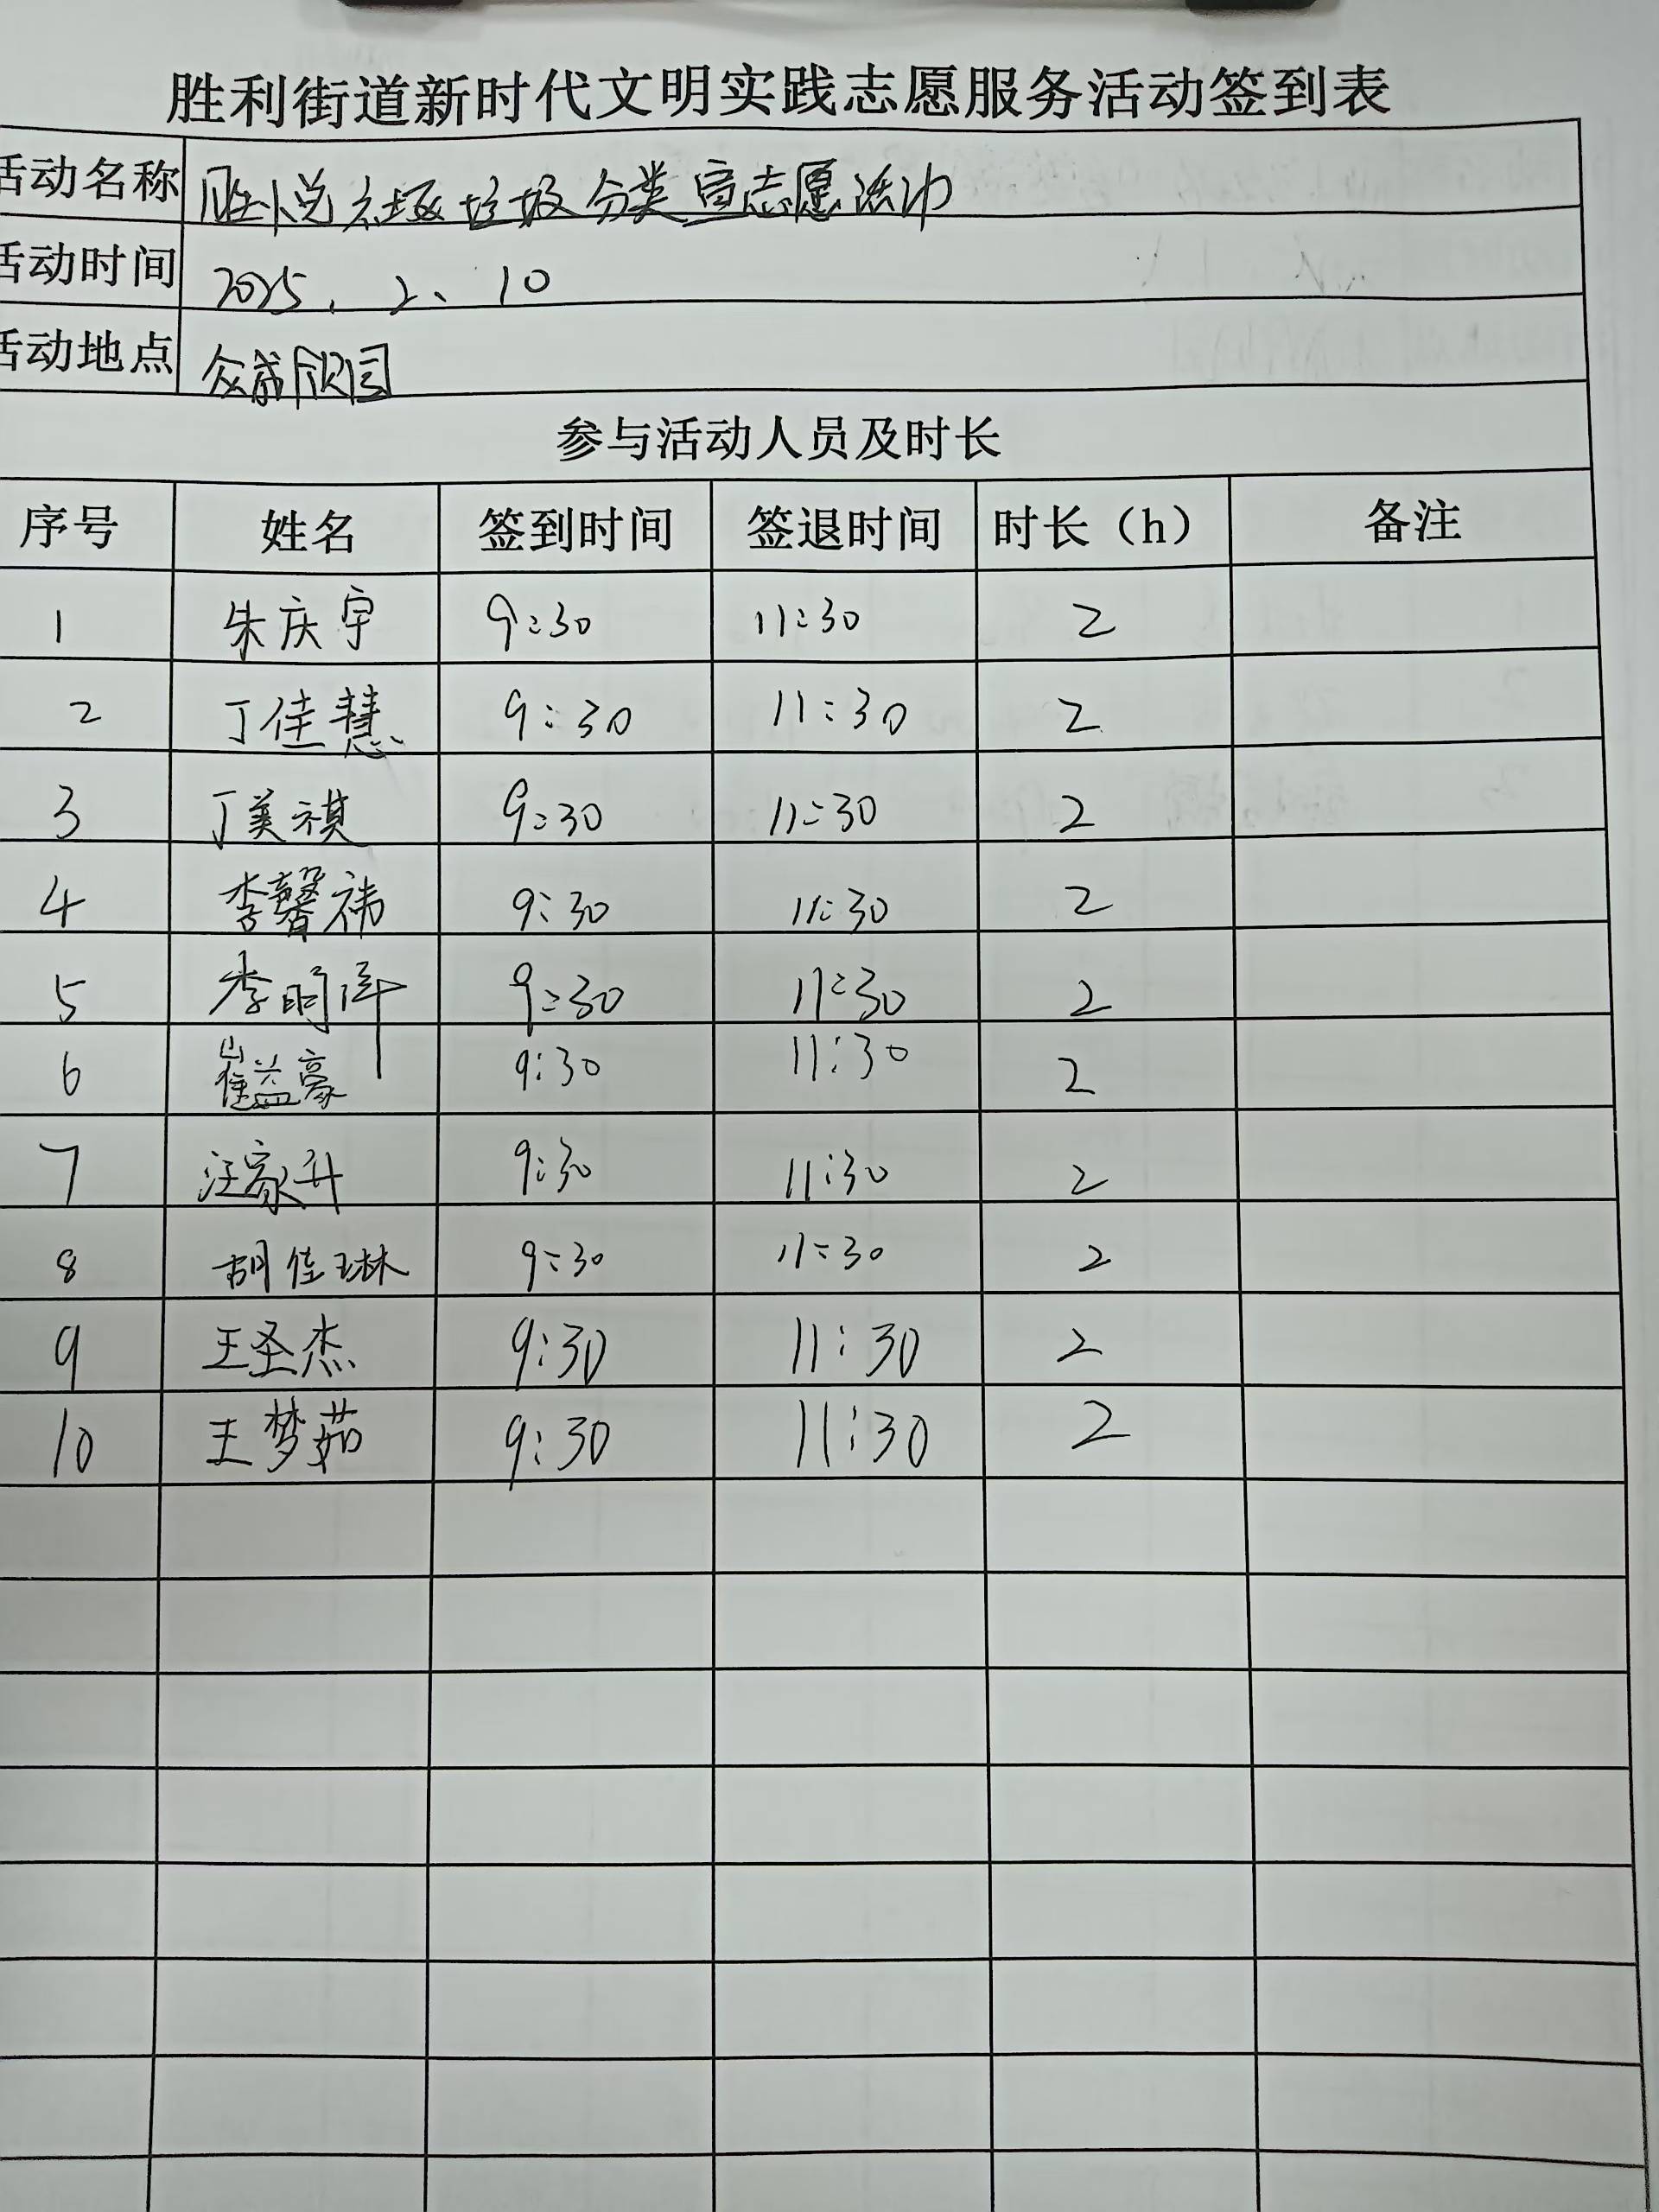 胜利街道新时代文明实践志愿服务活动签到表
活动名称 胜悦社区垃圾分类宣志愿活动
活动时间 2025、2、10
活动地点 众翕欣园
参与活动人员及时长
序号 姓名 签到时间 签退时间 时长（h） 备注
1 朱庆宇 9:30 11:30 2
2 丁佳慧 9:30 11:30 2
3 丁美祺 9:30 11:30 2
4 李馨祎 9:30 11:30 2
5 李明泽 9:30 11:30 2
6 崔益豪 9:30 11:30 2
7 汪家升 9:30 11:30 2
8 胡佳琳 9:30 11:30 2
9 王圣杰 9:30 11:30 2
10 王梦茹 9:30 11:30 2